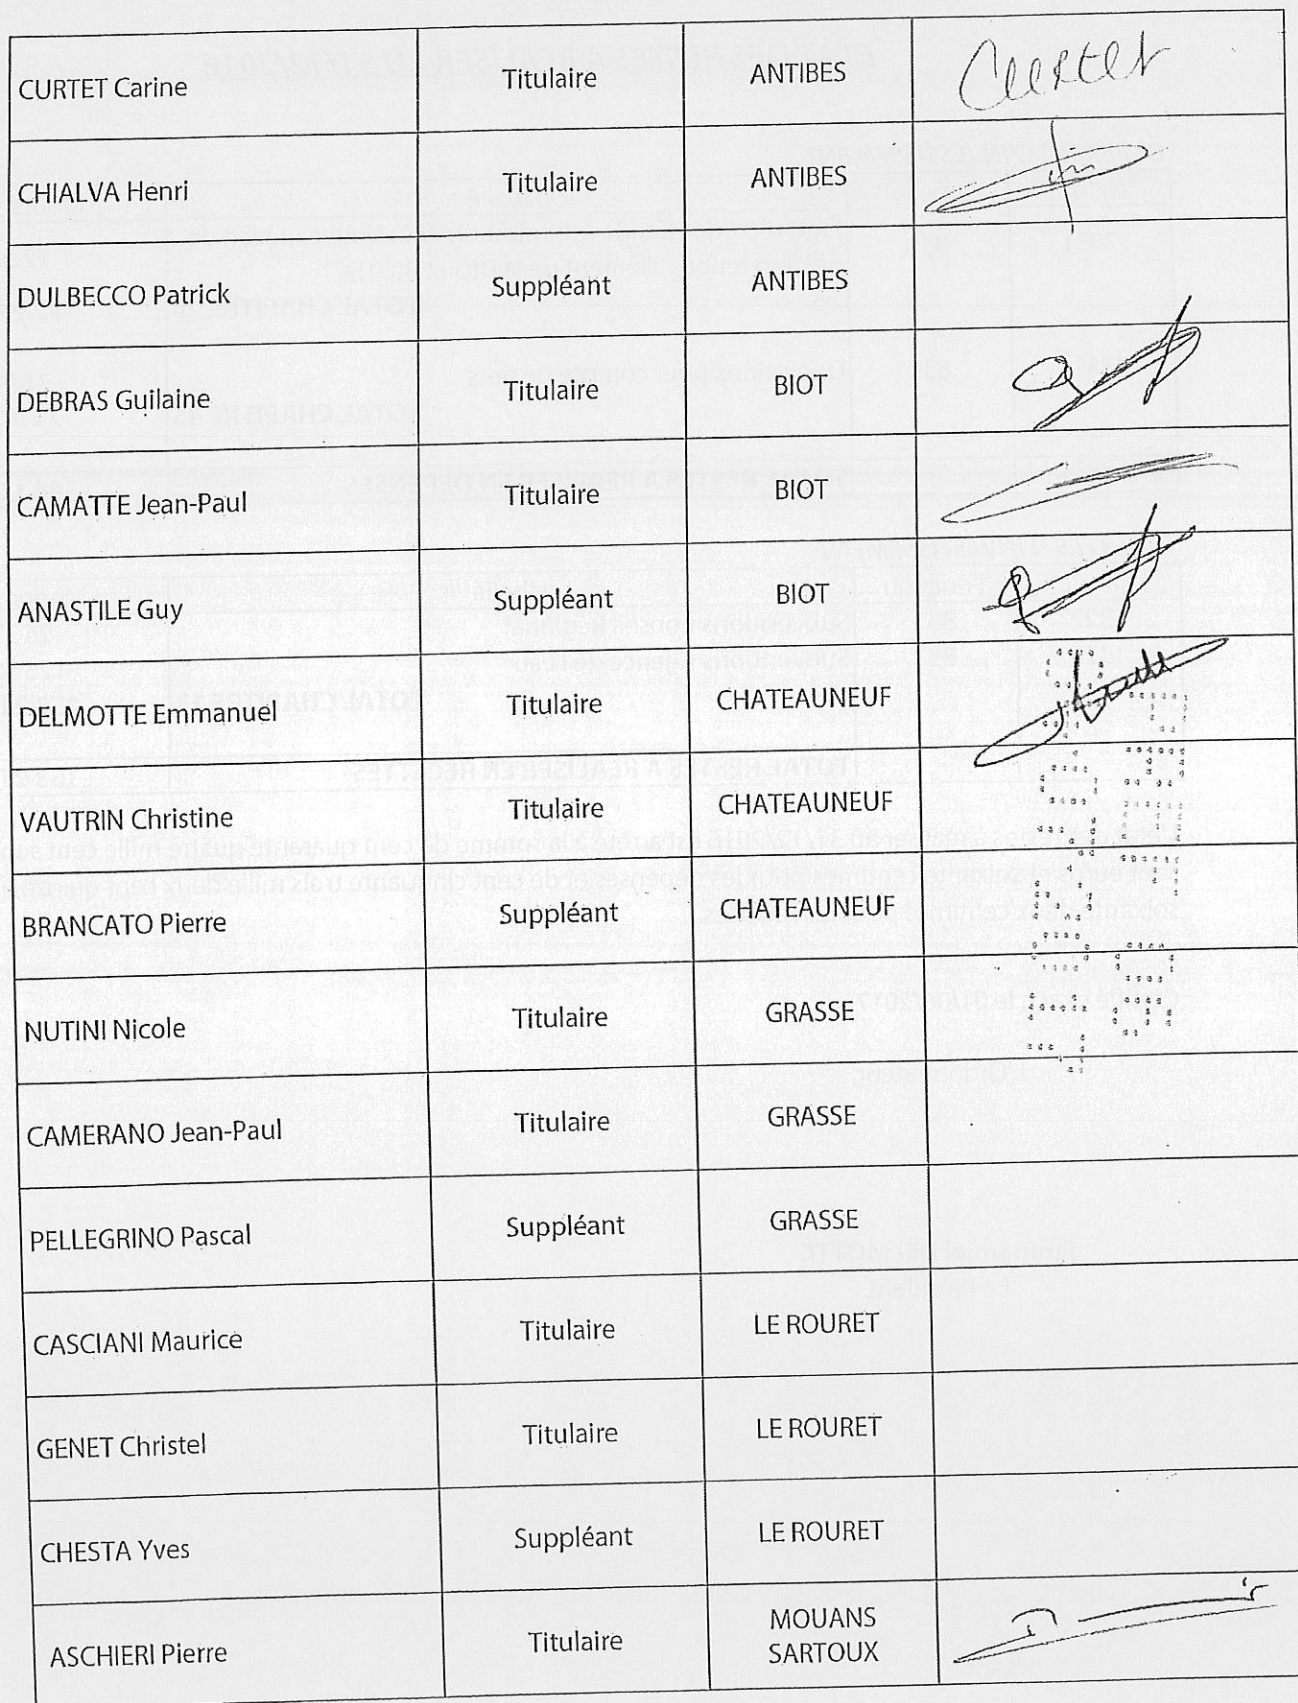 CURTET Carine Titulaire ANTIBES Curtet
CHIALVA Henri Titulaire ANTIBES
DULBECCO Patrick Suppléant ANTIBES
DEBRAS Guilaine Titulaire BIOT
CAMATTE Jean-Paul Titulaire BIOT
ANASTILE Guy Suppléant BIOT
DELMOTTE Emmanuel Titulaire CHATEAUNEUF
VAUTRIN Christine Titulaire CHATEAUNEUF
BRANCATO Pierre Suppléant CHATEAUNEUF
NUTINI Nicole Titulaire GRASSE
CAMERANO Jean-Paul Titulaire GRASSE
PELLEGRINO Pascal Suppléant GRASSE
CASCIANI Maurice Titulaire LE ROURET
GENET Christel Titulaire LE ROURET
CHESTA Yves Suppléant LE ROURET
ASCHIERI Pierre Titulaire MOUANS
SARTOUX